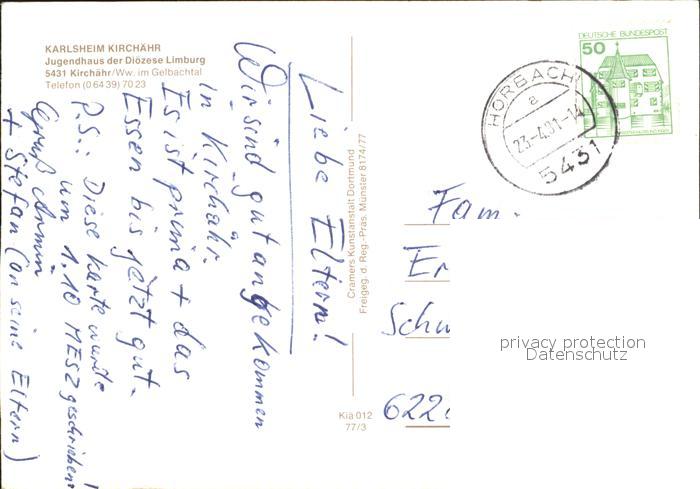 KARLSHEIM KIRCHÄHR
Jugendhaus der Diözese Limburg
5431 Kirchähr/Ww. im Gelbachtal
Telefon (0 64 39) 70 23
Liebe Eltern!
Wir sind gut angekommen
in Kirchähr.
Es ist prima + das
Essen bis jetzt gut.
P.S.: Diese Karte wurde
um 1.10 MESZ geschrieben!
Gruß Armin
+ Stefan (an seine Eltern)
Cramers Kunstanstalt Dortmund
Freigeg. d. Reg.-Präs. Münster 8174/77
Kia 012
77/3
DEUTSCHE BUNDESPOST
50
HORBACH
a
23.-4.81-14
5431
Fam.
Er
Schw
622
privacy protection
Datenschutz